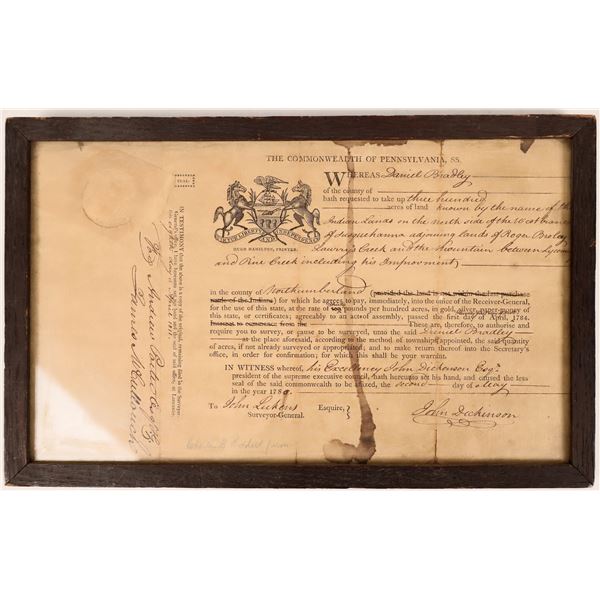 THE COMMONWEALTH OF PENNSYLVANIA, SS.
WHEREAS Daniel Bradley
of the county of
hath requested to take up three hundred
acres of land known by the name of the
Indian Lands on the north side of the West branch
of Susquehanna adjoining lands of Roger
Lawry's Creek and the Mountain between
and Pine Creek including his Improvement
VIRTUE LIBERTY AND INDEPENDENCE
HUGH HAMILTON, PRINTER.
in the county of Northumberland (provided the land is not within the last purchase
made of the Indians) for which he agrees to pay, immediately, into the office of the Receiver-General,
for the use of this state, at the rate of pounds per hundred acres, in gold, silver, paper-money of
this state, or certificates; agreeably to an act of assembly, passed the first day of April, 1784.
Interest to commence from the These are, therefore, to authorise and
require you to survey, or cause to be surveyed, unto the said Daniel Bradley
at the place aforesaid, according to the method of townships appointed, the said quantity
of acres, if not already surveyed or appropriated; and to make return thereof into the Secretary's
office, in order for confirmation; for which this shall be your warrant.
IN WITNESS whereof, his Excellency John Dickenson Esqr.
president of the supreme executive council, hath hereunto set his hand, and caused the less
seal of the said commonwealth to be affixed, the second day of May
in the year 178
To John Lukens Esquire,
Surveyor-General.
John Dickinson
SEAL
IN TESTIMONY that the above is a copy of the original, remaining filed in the Surveyor-
General's office, I have hereunto set my hand and seal of office, at Lancaster,
this day of April
For Andrew Porter Esq. S. G.
James